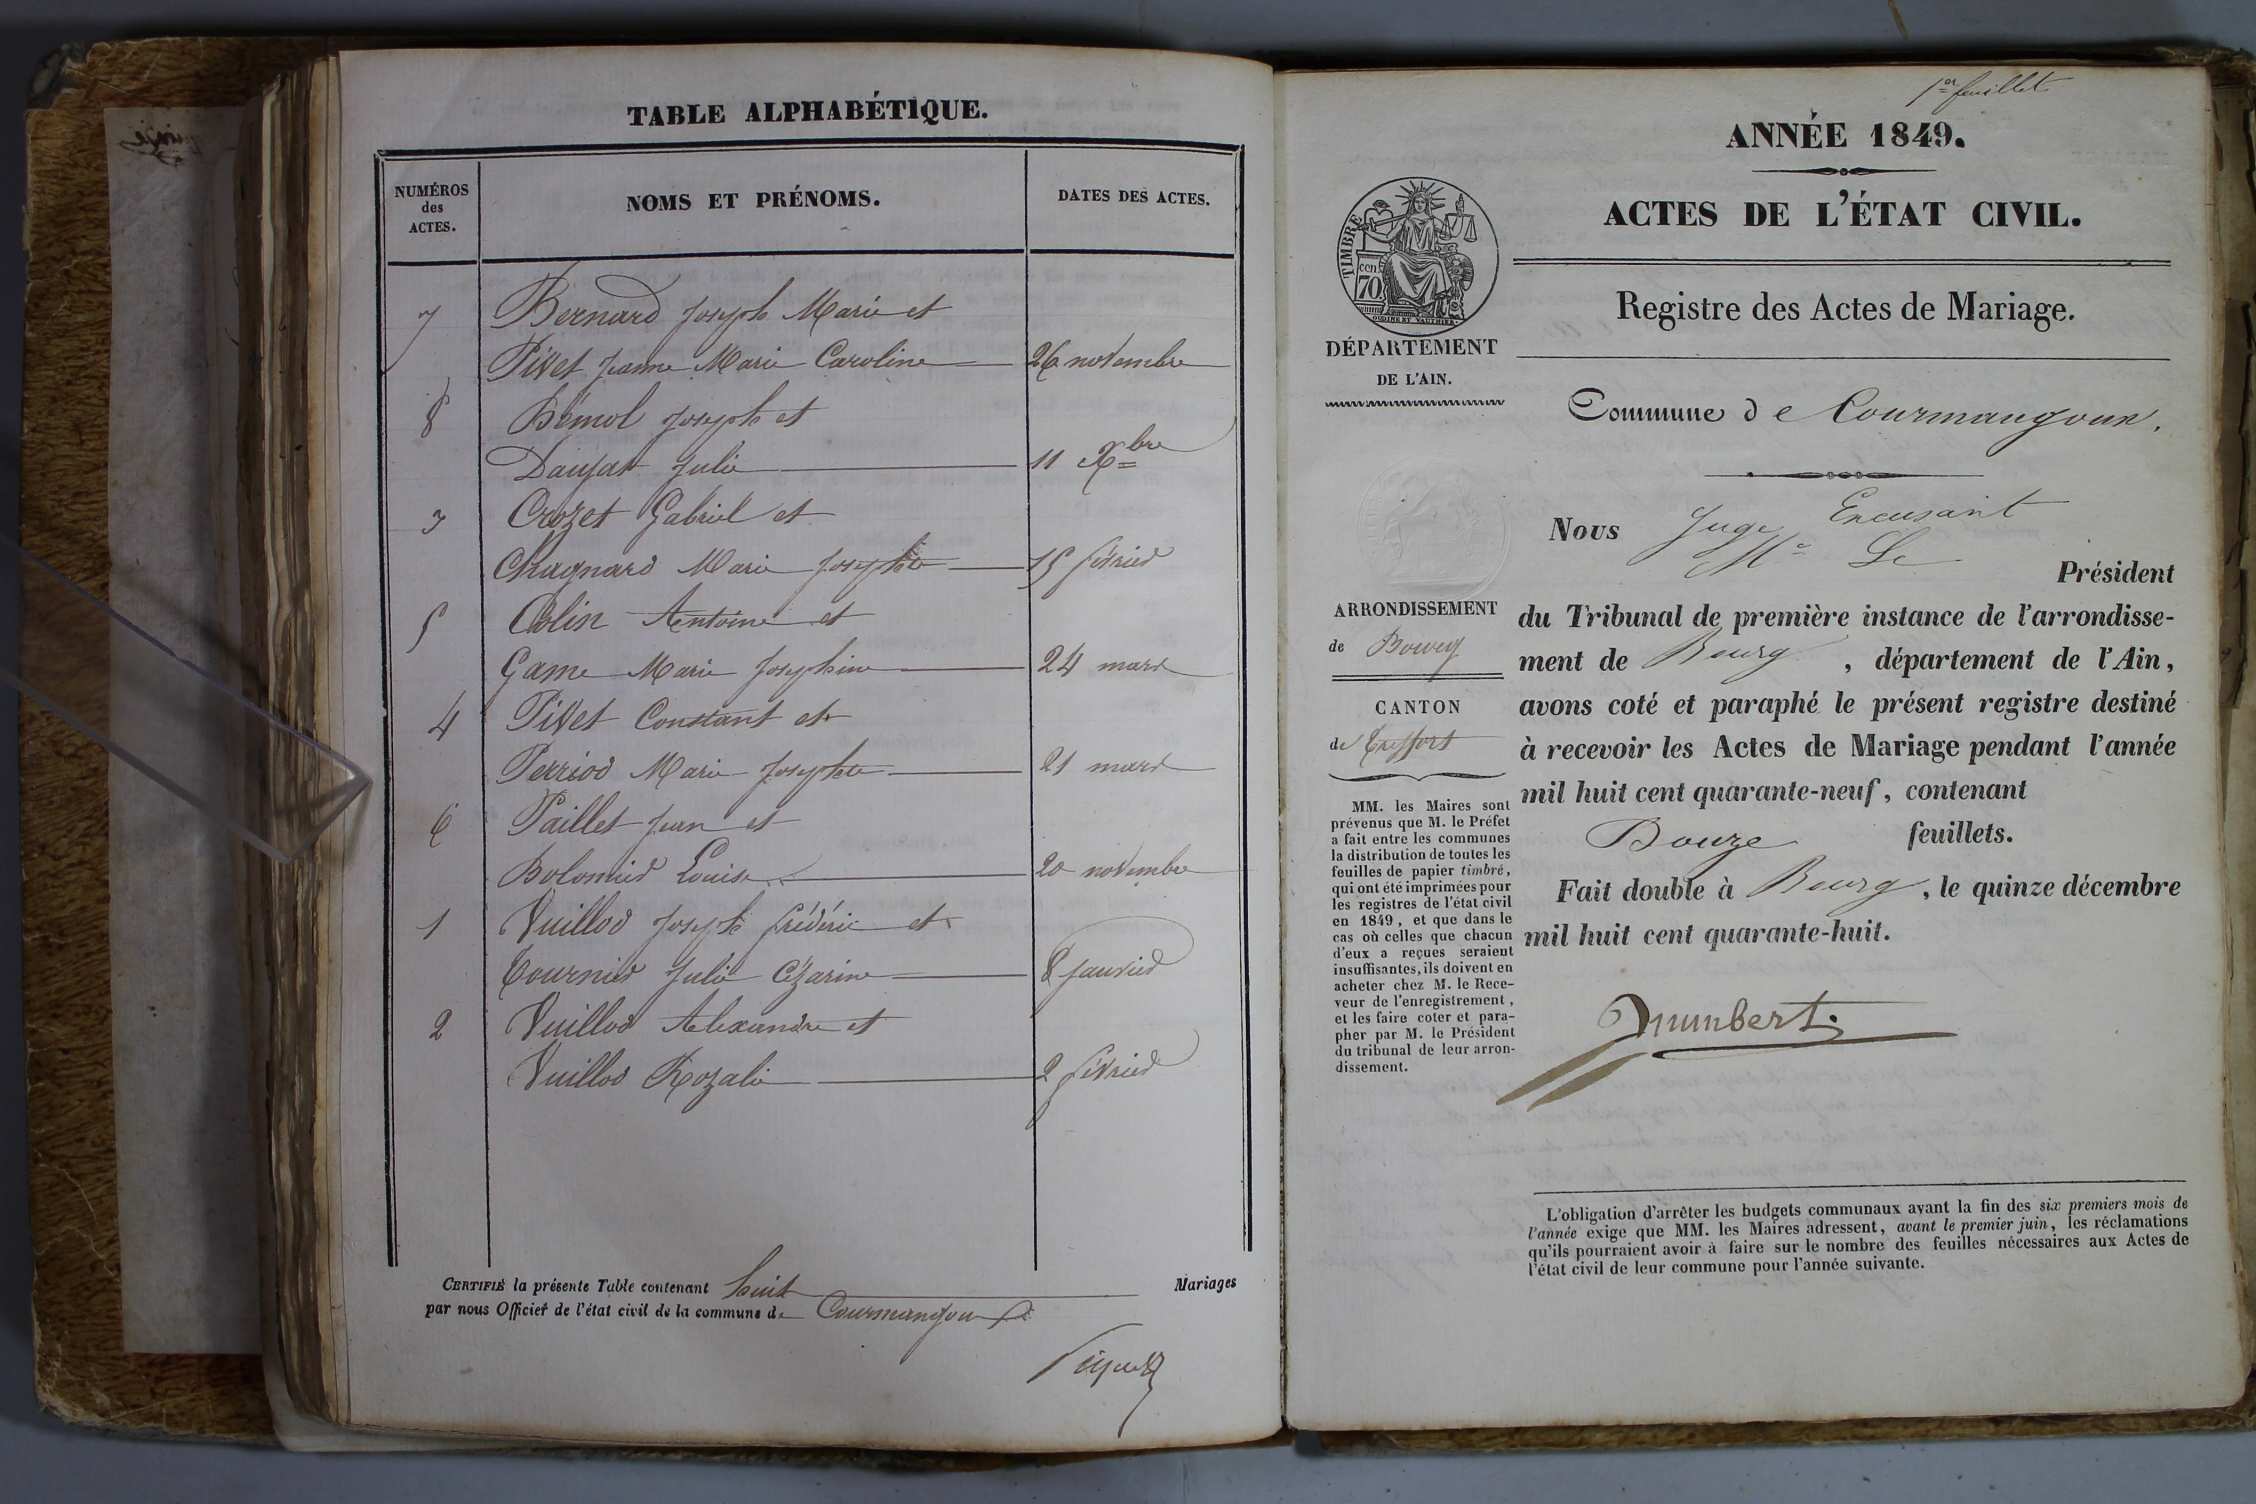 TABLE ALPHABÉTIQUE.
NUMÉROS
des
ACTES.
NOMS ET PRÉNOMS.
DATES DES ACTES.
7 Bernard Joseph Marie et
Pivet Jeanne Marie Caroline 26 novembre
8 Bémol Joseph et
Daujat Julie 11 Xbre
3 Crozet Gabriel et
Chagnard Marie Josephte 15 février
5 Colin Antoine et
Game Marie Josephine 24 mars
4 Pivet Constant et
Perriod Marie Josephte 21 mars
6 Paillet Jean et
Bolomier Louise 20 novembre
1 Vuillod Joseph frédéric et
Tournier Julie Cézarine 8 janvier
2 Vuillod Alexandre et
Vuillod Rozalie 2 février
CERTIFIÉ la présente Table contenant huit Mariages
par nous Officier de l'état civil de la commune de Courmangoux
1er feuillet
ANNÉE 1849.
ACTES DE L'ÉTAT CIVIL.
Registre des Actes de Mariage.
TIMBRE
cen.
70
OUDINÉ ET VAUTHIER.
DÉPARTEMENT
DE L'AIN.
Commune de Courmangoux.
ARRONDISSEMENT
de Bourg
CANTON
de Treffort
MM. les Maires sont
prévenus que M. le Préfet
a fait entre les communes
la distribution de toutes les
feuilles de papier timbré,
qui ont été imprimées pour
les registres de l'état civil
en 1849, et que dans le
cas où celles que chacun
d'eux a reçues seraient
insuffisantes, ils doivent en
acheter chez M. le Rece-
veur de l'enregistrement,
et les faire coter et para-
pher par M. le Président
du tribunal de leur arron-
dissement.
Nous Juge
Mr Le Président
du Tribunal de première instance de l'arrondisse-
ment de Bourg, département de l'Ain,
avons coté et paraphé le présent registre destiné
à recevoir les Actes de Mariage pendant l'année
mil huit cent quarante-neuf, contenant
Douze feuillets.
Fait double à Bourg, le quinze décembre
mil huit cent quarante-huit.
L'obligation d'arrêter les budgets communaux avant la fin des six premiers mois de
l'année exige que MM. les Maires adressent, avant le premier juin, les réclamations
qu'ils pourraient avoir à faire sur le nombre des feuilles nécessaires aux Actes de
l'état civil de leur commune pour l'année suivante.